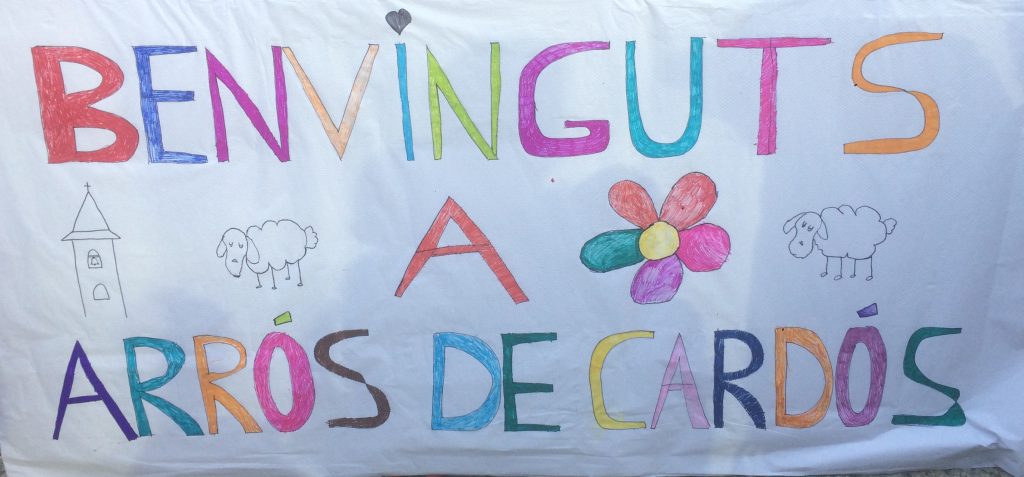 BENVINGUTS
A
ARRÓS DE CARDÓS